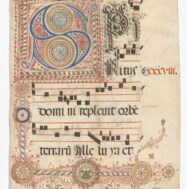 S P
ritus CXXXVIII.
domi ni repleuit orbē
terrarū Alle lu ya et